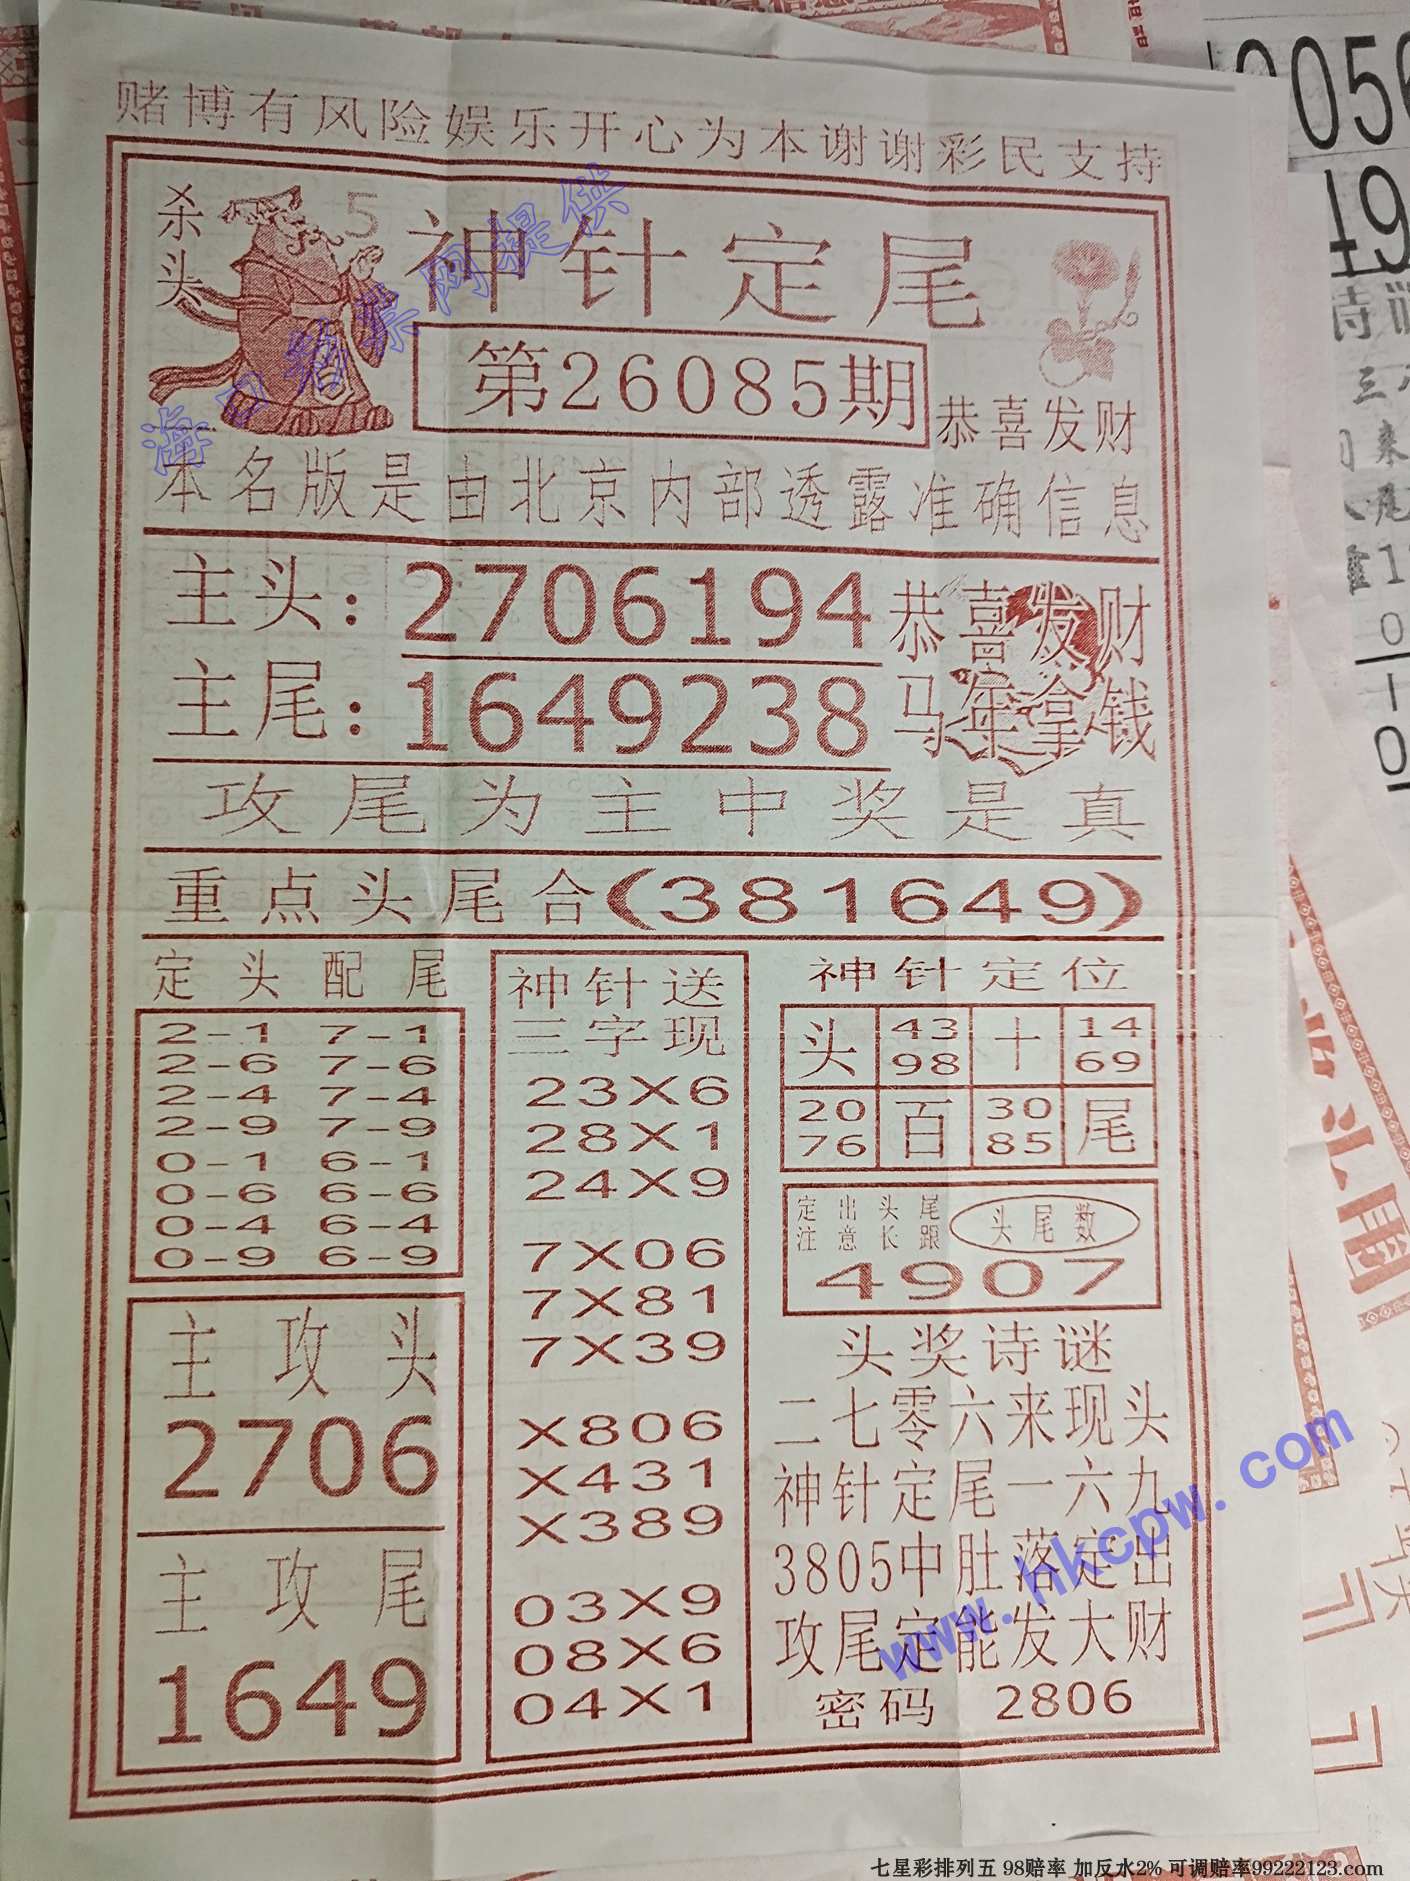 赌博有风险娱乐开心为本谢谢彩民支持
杀头
5
神针定尾
第26085期
恭喜发财
海口彩票网提供
本名版是由北京内部透露准确信息
主头：2706194
恭喜发财
主尾：1649238
马年拿钱
攻尾为主中奖是真
重点头尾合(381649)
定头配尾
2-1 7-1
2-6 7-6
2-4 7-4
2-9 7-9
0-1 6-1
0-6 6-6
0-4 6-4
0-9 6-9
主攻头
2706
主攻尾
1649
神针送
三字现
23X6
28X1
24X9
7X06
7X81
7X39
X806
X431
X389
03X9
08X6
04X1
神针定位
头 43 十 14
98 69
20 百 30 尾
76 85
定出头尾
注意长跟
头尾数
4907
头奖诗谜
二七零六来现头
神针定尾一六九
3805中肚落定出
攻尾定能发大财
密码 2806
www.hkcpw.com
七星彩排列五 98赔率 加反水2% 可调赔率99222123.com